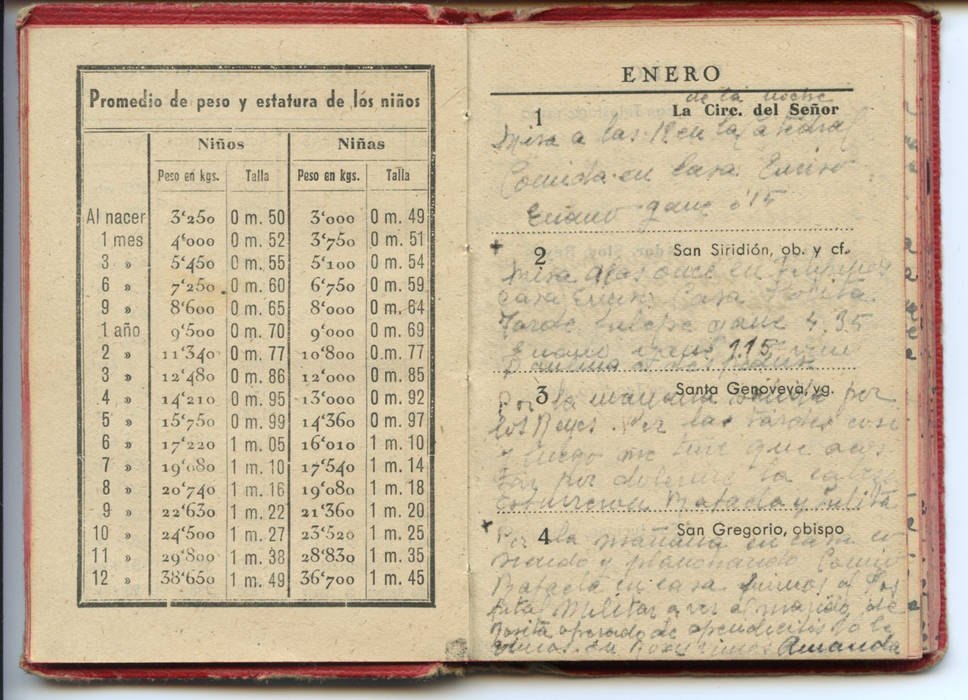 Promedio de peso y estatura de los niños
Niños Niñas
Peso en kgs. Talla Peso en kgs. Talla
Al nacer 3'250 0 m. 50 3'000 0 m. 49
1 mes 4'000 0 m. 52 3'750 0 m. 51
3 » 5'450 0 m. 55 5'100 0 m. 54
6 » 7'250 0 m. 60 6'750 0 m. 59
9 » 8'600 0 m. 65 8'000 0 m. 64
1 año 9'500 0 m. 70 9'000 0 m. 69
2 » 11'340 0 m. 77 10'800 0 m. 77
3 » 12'480 0 m. 86 12'000 0 m. 85
4 » 14'210 0 m. 95 13'000 0 m. 92
5 » 15'750 0 m. 99 14'360 0 m. 97
6 » 17'220 1 m. 05 16'010 1 m. 10
7 » 19'080 1 m. 10 17'540 1 m. 14
8 » 20'740 1 m. 16 19'080 1 m. 18
9 » 22'630 1 m. 22 21'360 1 m. 20
10 » 24'500 1 m. 27 23'520 1 m. 25
11 » 29'800 1 m. 38 28'830 1 m. 35
12 » 38'650 1 m. 49 36'700 1 m. 45
ENERO
de la noche
1 La Circ. del Señor
Misa a las 12 en la Catedral
Comida en casa
gané 0'15
2 San Siridión, ob. y cf.
Misa a las once en
Casa Casa
Tarde gané 4.35
1.15
3 Santa Genoveva, vg.
Por la mañana por
los Reyes. Por la tarde cosí
y luego me tuve que acos
tar por dolerme la cabeza
Estuvieron Rafaela y Julita
4 San Gregorio, obispo
Por la mañana en casa co
siendo y planchando Comió
Rafaela en casa fuimos al Hos
pital Militar a ver al marido de
Rosita operado de apendicitis
Amanda